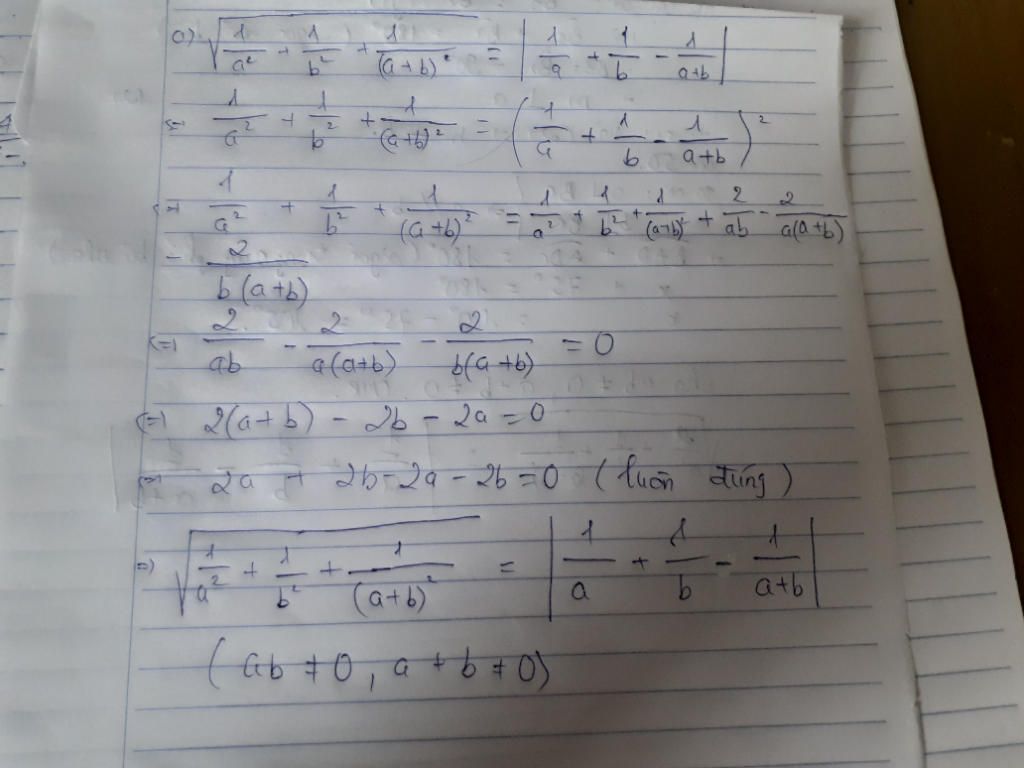 a) √(1/a² + 1/b² + 1/(a+b)²) = |1/a + 1/b - 1/(a+b)|
⇔ 1/a² + 1/b² + 1/(a+b)² = (1/a + 1/b - 1/(a+b))²
⇔ 1/a² + 1/b² + 1/(a+b)² = 1/a² + 1/b² + 1/(a+b)² + 2/ab - 2/a(a+b)
- 2/b(a+b)
⇔ 2/ab - 2/a(a+b) - 2/b(a+b) = 0
⇔ 2(a+b) - 2b - 2a = 0
⇔ 2a + 2b - 2a - 2b = 0 (luôn đúng)
⇒ √(1/a² + 1/b² + 1/(a+b)²) = |1/a + 1/b - 1/(a+b)|
(ab ≠ 0, a + b ≠ 0)